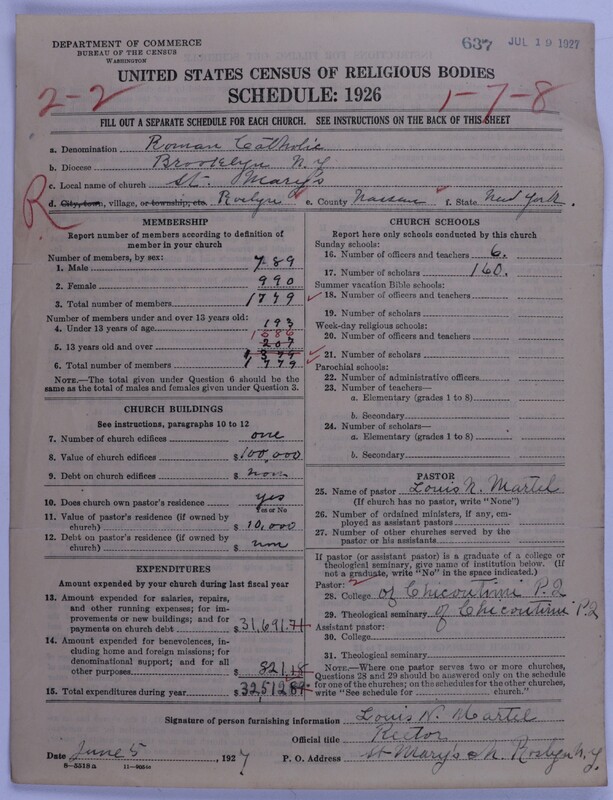 637 JUL 19 1927
DEPARTMENT OF COMMERCE
BUREAU OF THE CENSUS
WASHINGTON
UNITED STATES CENSUS OF RELIGIOUS BODIES
SCHEDULE: 1926
2-2 1-7-8
FILL OUT A SEPARATE SCHEDULE FOR EACH CHURCH. SEE INSTRUCTIONS ON THE BACK OF THIS SHEET
a. Denomination Roman Catholic
b. Diocese Brooklyn N.Y
c. Local name of church St. Mary's
R
d. City, town, village, or township, etc. Roslyn e. County Nassau f. State New York.
MEMBERSHIP
Report number of members according to definition of
member in your church
Number of members, by sex:
1. Male 789
2. Female 990
3. Total number of members 1779
Number of members under and over 13 years old:
4. Under 13 years of age 193
1586
5. 13 years old and over 207
6. Total number of members 1779
NOTE.—The total given under Question 6 should be the
same as the total of males and females given under Question 3.
CHURCH BUILDINGS
See instructions, paragraphs 10 to 12
7. Number of church edifices one
8. Value of church edifices $100,000
9. Debt on church edifices $ non
10. Does church own pastor's residence yes
Yes or No
11. Value of pastor's residence (if owned by
church) $ 10,000
12. Debt on pastor's residence (if owned by
church) $ non
EXPENDITURES
Amount expended by your church during last fiscal year
13. Amount expended for salaries, repairs,
and other running expenses; for im-
provements or new buildings; and for
payments on church debt $31,691.71
14. Amount expended for benevolences, in-
cluding home and foreign missions; for
denominational support; and for all
other purposes $ 821,18
15. Total expenditures during year $32,512 89
CHURCH SCHOOLS
Report here only schools conducted by this church
Sunday schools:
16. Number of officers and teachers 6.
17. Number of scholars 160.
Summer vacation Bible schools:
18. Number of officers and teachers
19. Number of scholars
Week-day religious schools:
20. Number of officers and teachers
21. Number of scholars
Parochial schools:
22. Number of administrative officers
23. Number of teachers—
a. Elementary (grades 1 to 8)
b. Secondary
24. Number of scholars—
a. Elementary (grades 1 to 8)
b. Secondary
PASTOR
25. Name of pastor Louis N. Martel
(If church has no pastor, write "None")
26. Number of ordained ministers, if any, em-
ployed as assistant pastors
27. Number of other churches served by the
pastor or his assistants
If pastor (or assistant pastor) is a graduate of a college or
theological seminary, give name of institution below. (If
not a graduate, write "No" in the space indicated.)
Pastor:
28. College of Chicoutimi P.Q
29. Theological seminary of Chicoutimi P.Q
Assistant pastor:
30. College
31. Theological seminary
NOTE.—Where one pastor serves two or more churches,
Questions 28 and 29 should be answered only on the schedule
for one of the churches; on the schedules for the other churches,
write "See schedule for church."
Signature of person furnishing information Louis N. Martel
Official title Rector
Date June 5 1927 P. O. Address St Mary's Roslyn N.Y.
8-5518a 11-9054a